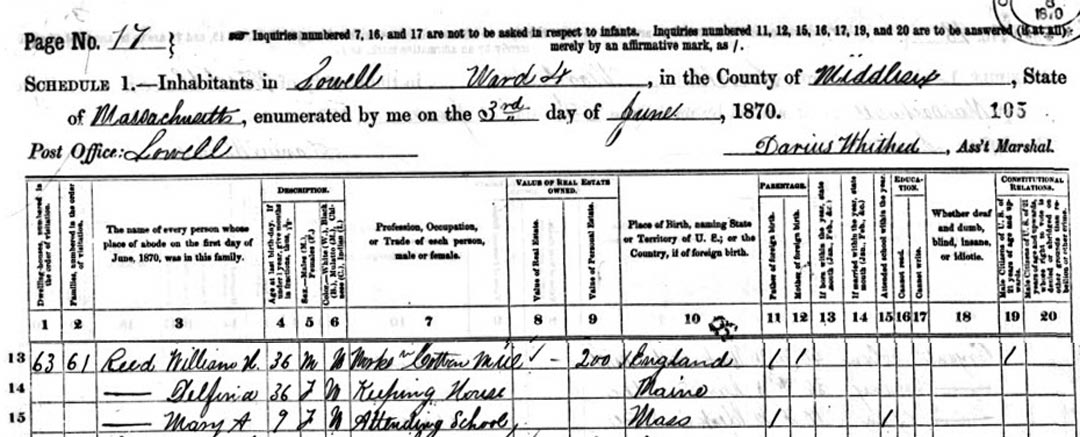 1870
Page No. 17 } Inquiries numbered 7, 16, and 17 are not to be asked in respect to infants. Inquiries numbered 11, 12, 15, 16, 17, 19, and 20 are to be answered (if at all)
merely by an affirmative mark, as /.
SCHEDULE 1.—Inhabitants in Lowell Ward , in the County of Middlesex, State
of Massachusetts, enumerated by me on the 3rd day of June, 1870. 105
Post Office: Lowell Darius Whithed, Ass't Marshal.
Dwelling-houses, numbered in the order of visitation.
Families, numbered in the order of visitation.
The name of every person whose place of abode on the first day of June, 1870, was in this family.
DESCRIPTION.
Age at last birth-day. If under 1 year, give months in fractions, thus,
Sex.—Males (M.), Females (F.)
Color.—White (W.), Black (B.), Mulatto (M.), Chinese (C.), Indian (I.)
Profession, Occupation, or Trade of each person, male or female.
VALUE OF REAL ESTATE OWNED.
Value of Real Estate.
Value of Personal Estate.
Place of Birth, naming State or Territory of U. S.; or the Country, if of foreign birth.
PARENTAGE.
Father of foreign birth.
Mother of foreign birth.
If born within the year, state month (Jan., Feb., &c.)
If married within the year, state month (Jan., Feb., &c.)
Attended school within the year.
EDUCATION.
Cannot read.
Cannot write.
Whether deaf and dumb, blind, insane, or idiotic.
CONSTITUTIONAL RELATIONS.
Male Citizens of U. S. of 21 years of age and upwards.
Male Citizens of U. S. of 21 years of age and upwards, whose right to vote is denied or abridged on other grounds than rebellion or other crime.
1 2 3 4 5 6 7 8 9 10 11 12 13 14 15 16 17 18 19 20
13 63 61 Reed William H. 36 M W Works in Cotton Mill √ - 200 England / / /
14 — Delfina 36 F W Keeping House Maine
15 — Mary A 9 F W Attending School Mass / /